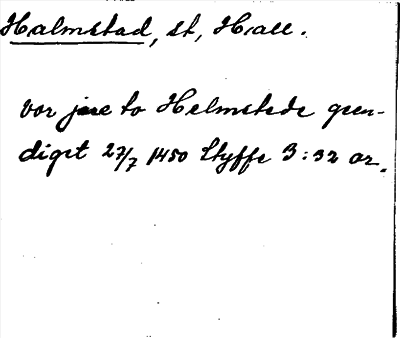 Halmstad, st, Hall.
vor jare to Helmstede geen-
diget 27/7 1450 Styffe 3:32 or.